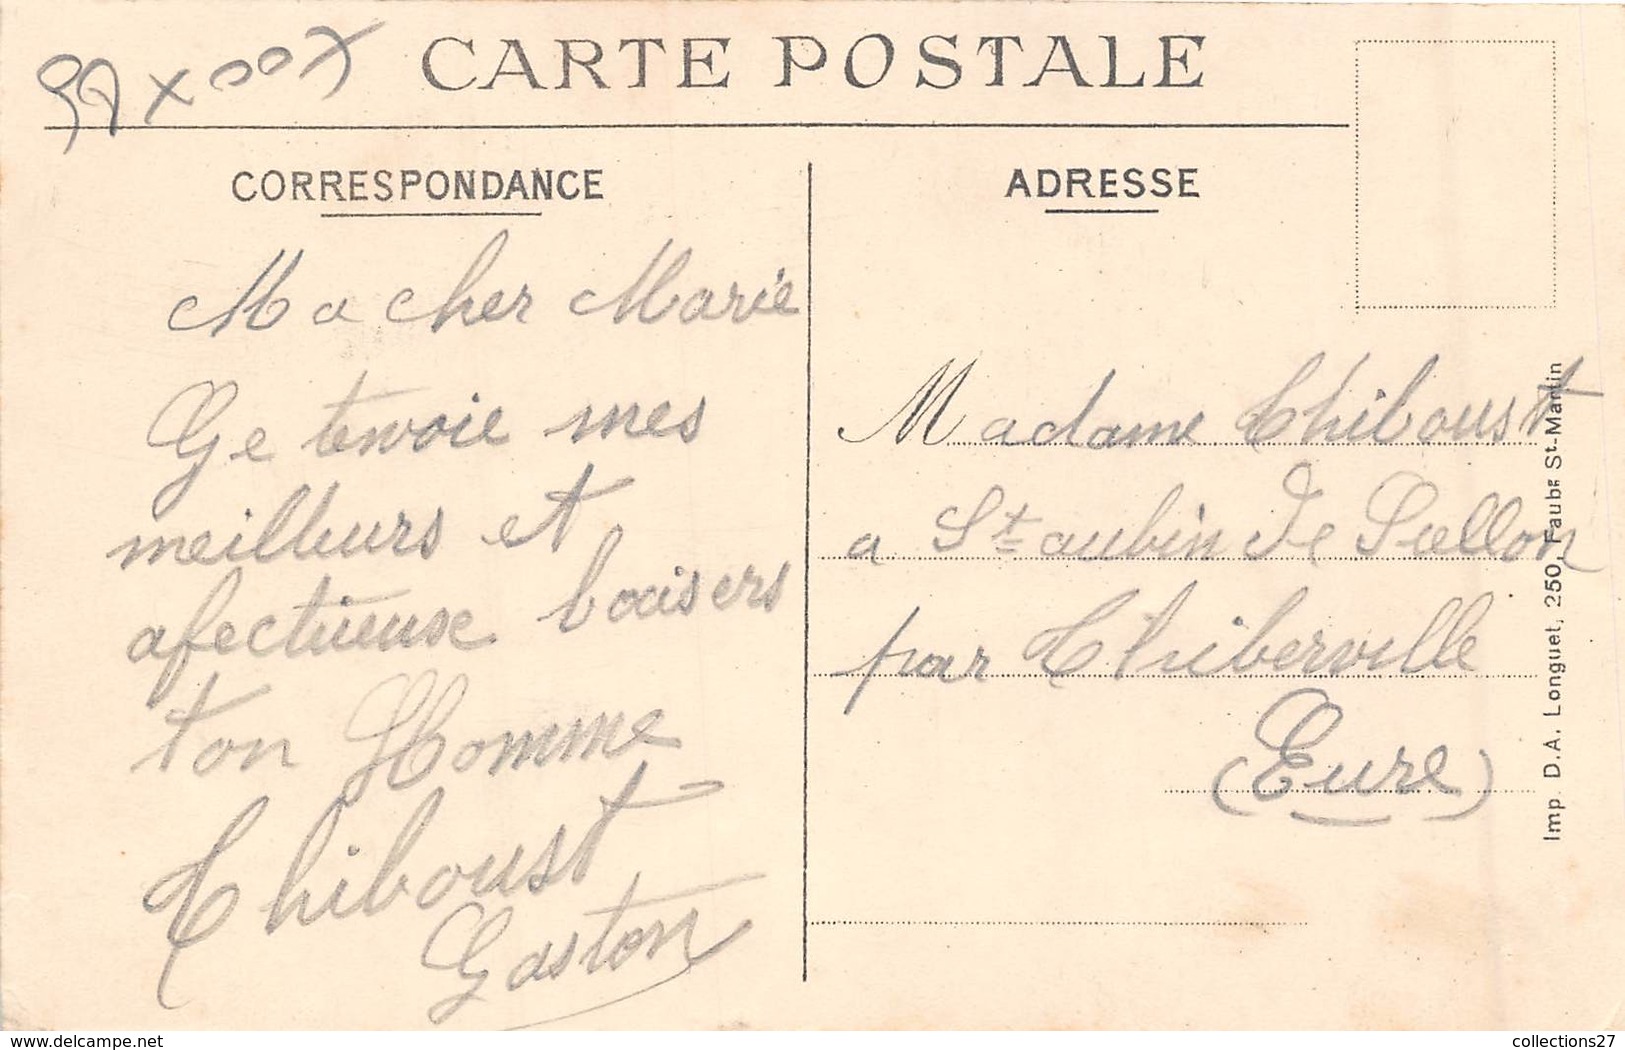 CARTE POSTALE
CORRESPONDANCE
Ma cher Marie
Ge tenvoie mes
meilleurs et
afectueuse baisers
ton Homme
Thiboust
Gaston
ADRESSE
Madame Thiboust
a St aubin de Sellon
par Thiberville
(Eure)
Imp. D.A. Longuet, 250, Faubg St-Martin
www.delcampe.net
collections27